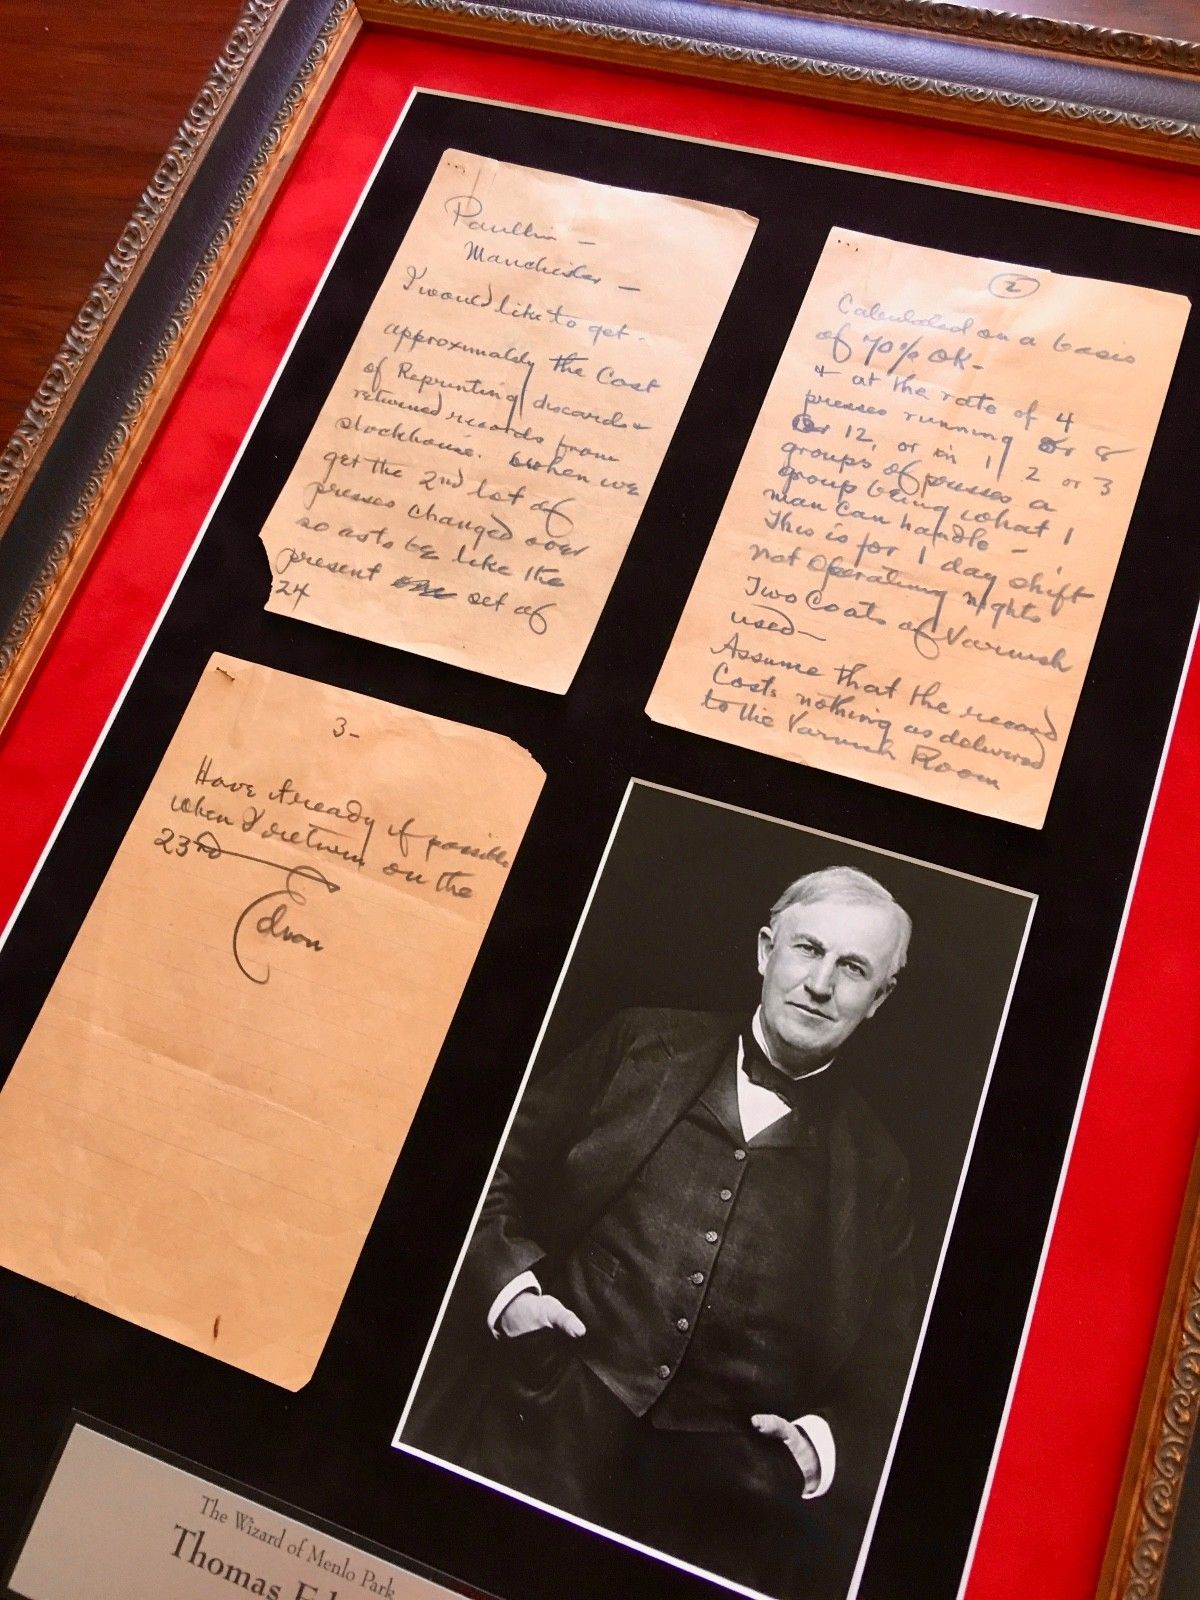 Paullin —
Manchester —
I would like to get -
approximately the Cost
of Reprinting discards &
returned records from
stockhouse. When we
get the 2nd lot of
presses changed over
so as to be like the
present set of
24
2
Calculated on a basis
of 70% OK-
& at the rate of 4
presses running or 8
or 12, or in 1, 2 or 3
groups of presses a
group being what 1
man can handle —
This is for 1 day shift
not Operating nights
Two Coats of Varnish
used—
Assume that the record
Costs nothing as delivered
to the Varnish Room
3-
Have Already if possible
when I return on the
23rd
Edison
The Wizard of Menlo Park
Thomas